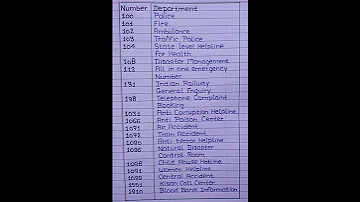 Number Department
100 Police
101 Fire
102 Ambulance
103 Traffic Police
104 State level Helpline
for Health
108 Disaster Management
112 All in one emergency
Number
131 Indian Railway
General Enquiry
198 Telephone Complaint
Booking
1031 Anti Corruption Helpline
1066 Anti Poison Center
1071 Air Accident
1072 Train Accident
1090 Anti terror Helpline
1096 Natural Disaster
Control Room
1098 Child Abuse Hotline
1091 Women Helpline
1099 Central Accident
1551 Kisan Call Center
1910 Blood Bank Information